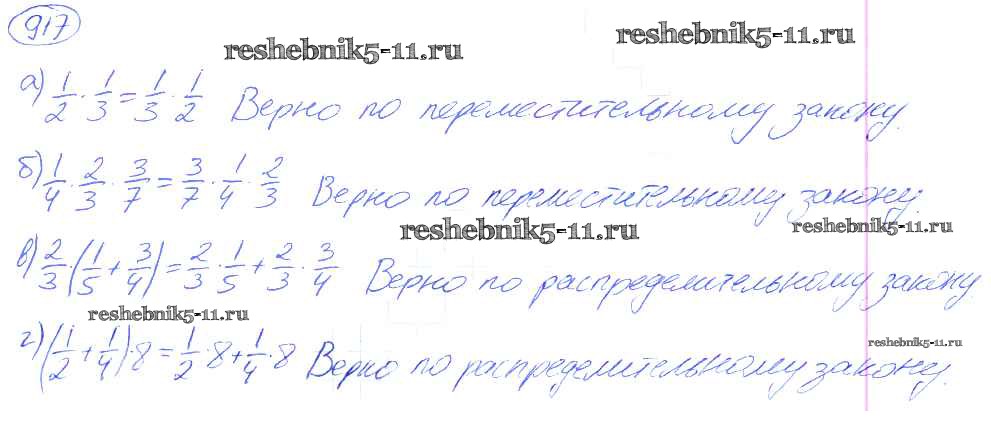 917
reshebnik5-11.ru
reshebnik5-11.ru
а) 1/2 · 1/3 = 1/3 · 1/2 Верно по переместительному закону.
б) 1/4 · 2/3 · 3/7 = 3/7 · 1/4 · 2/3 Верно по переместительному закону.
reshebnik5-11.ru
reshebnik5-11.ru
в) 2/3 · (1/5 + 3/4) = 2/3 · 1/5 + 2/3 · 3/4 Верно по распределительному закону.
reshebnik5-11.ru
г) (1/2 + 1/4) · 8 = 1/2 · 8 + 1/4 · 8 Верно по распределительному закону.
reshebnik5-11.ru